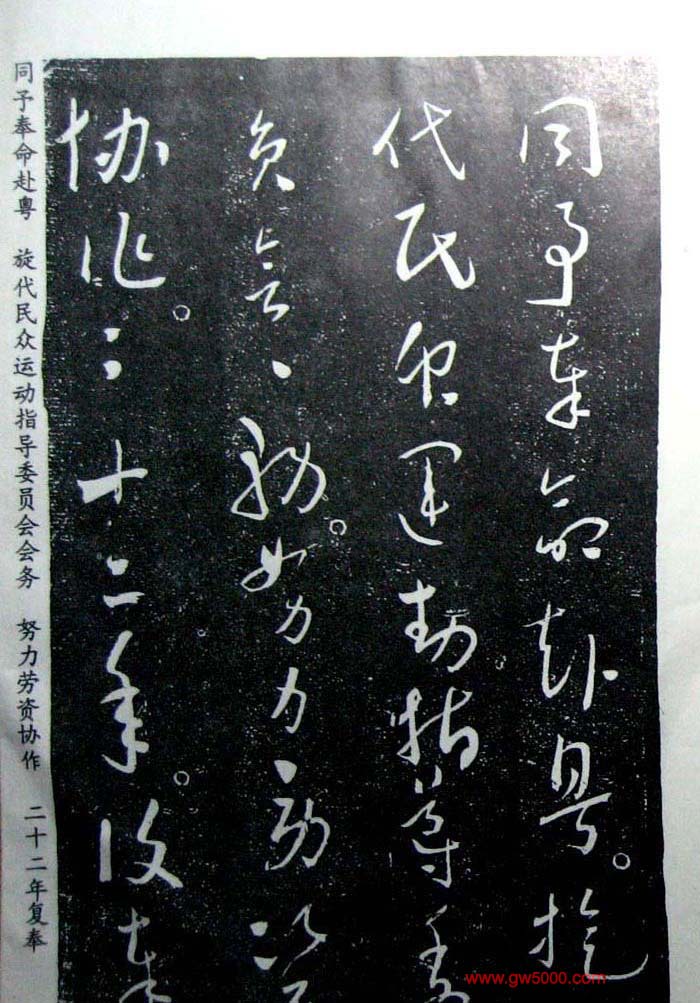 同予奉命赴粤。旋
代民众运动指导委
员会会务。努力劳资
协作。二十二年。复奉
同予奉命赴粤　旋代民众运动指导委员会会务　努力劳资协作　二十二年复奉
www.gw5000.com